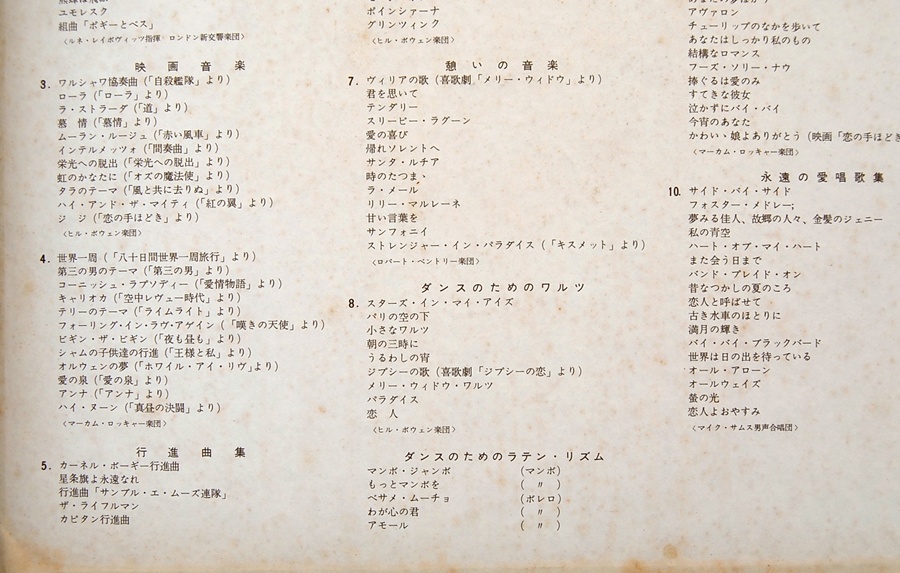 ユモレスク
組曲「ポギーとベス」
〈ルネ・レイボヴィッツ指揮 ロンドン新交響楽団〉
映画音楽
3. ワルシャワ協奏曲(「自殺艦隊」より)
ローラ(「ローラ」より)
ラ・ストラーダ(「道」より)
慕情(「慕情」より)
ムーラン・ルージュ(「赤い風車」より)
インテルメッツォ(「間奏曲」より)
栄光への脱出(「栄光への脱出」より)
虹のかなたに(「オズの魔法使」より)
タラのテーマ(「風と共に去りぬ」より)
ハイ・アンド・ザ・マイティ(「紅の翼」より)
ジジ(「恋の手ほどき」より)
〈ヒル・ボウェン楽団〉
4. 世界一周(「八十日間世界一周旅行」より)
第三の男のテーマ(「第三の男」より)
コーニッシュ・ラプソディー(「愛情物語」より)
キャリオカ(「空中レヴュー時代」より)
テリーのテーマ(「ライムライト」より)
フォーリング・イン・ラヴ・アゲイン(「嘆きの天使」より)
ビギン・ザ・ビギン(「夜も昼も」より)
シャムの子供達の行進(「王様と私」より)
オルウェンの夢(「ホワイル・アイ・リヴ」より)
愛の泉(「愛の泉」より)
アンナ(「アンナ」より)
ハイ・ヌーン(「真昼の決闘」より)
〈マーカム・ロッキャー楽団〉
行進曲集
5. カーネル・ボーギー行進曲
星条旗よ永遠なれ
行進曲「サンブル・エ・ムーズ連隊」
ザ・ライフルマン
カピタン行進曲
ポインシァーナ
グリンツィンク
〈ヒル・ボウェン楽団〉
憩いの音楽
7. ヴィリアの歌(喜歌劇「メリー・ウィドウ」より)
君を思いて
テンダリー
スリーピー・ラグーン
愛の喜び
帰れソレントへ
サンタ・ルチア
時のたつまゝ
ラ・メール
リリー・マルレーネ
甘い言葉を
サンフォニイ
ストレンジャー・イン・パラダイス(「キスメット」より)
〈ロバート・ベントリー楽団〉
ダンスのためのワルツ
8. スターズ・イン・マイ・アイズ
パリの空の下
小さなワルツ
朝の三時に
うるわしの宵
ジプシーの歌(喜歌劇「ジプシーの恋」より)
メリー・ウィドウ・ワルツ
パラダイス
恋人
〈ヒル・ボウェン楽団〉
ダンスのためのラテン・リズム
マンボ・ジャンボ (マンボ)
もっとマンボを (〃)
ベサメ・ムーチョ (ボレロ)
わが心の君 (〃)
アモール (〃)
アヴァロン
チューリップのなかを歩いて
あなたはしっかり私のもの
結構なロマンス
フーズ・ソリー・ナウ
捧ぐるは愛のみ
すてきな彼女
泣かずにバイ・バイ
今宵のあなた
かわいゝ娘よありがとう(映画「恋の手ほどき
〈マーカム・ロッキャー楽団〉
永遠の愛唱歌集
10. サイド・バイ・サイド
フォスター・メドレー;
夢みる佳人、故郷の人々、金髪のジェニー
私の青空
ハート・オブ・マイ・ハート
また会う日まで
バンド・プレイド・オン
昔なつかしの夏のころ
恋人と呼ばせて
古き水車のほとりに
満月の輝き
バイ・バイ・ブラックバード
世界は日の出を待っている
オール・アローン
オールウェイズ
螢の光
恋人よおやすみ
〈マイク・サムス男声合唱団〉